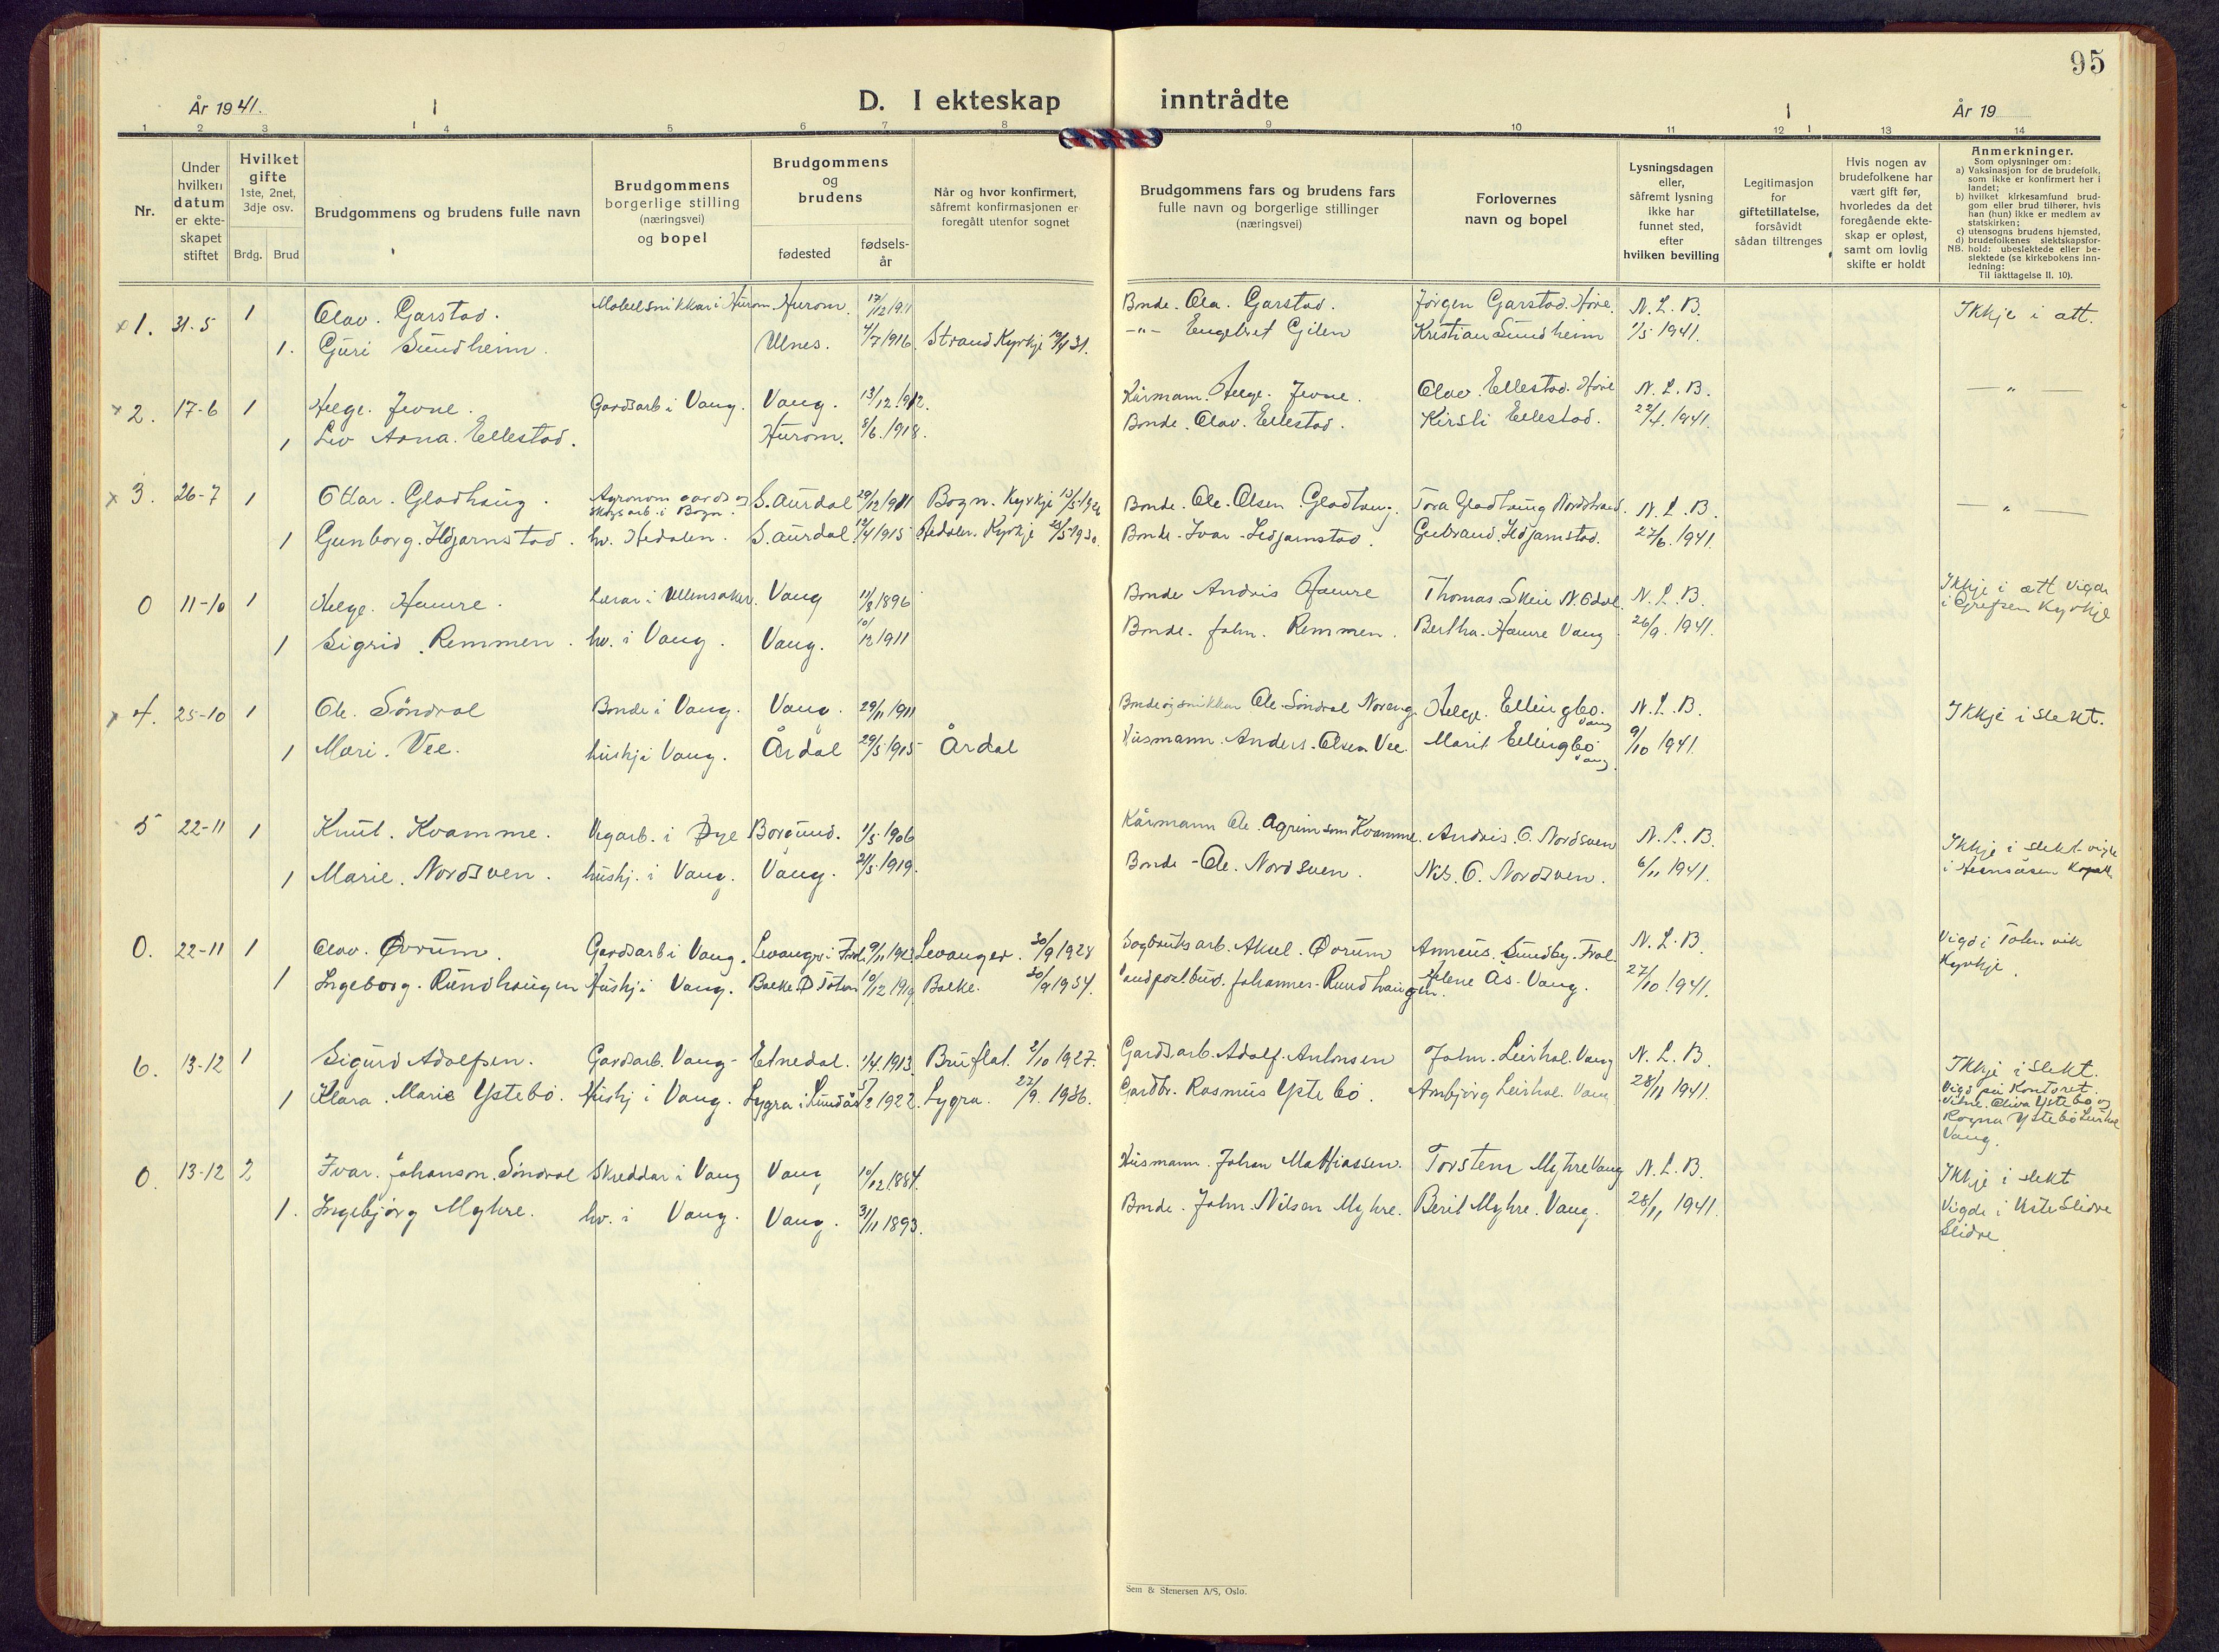 95
År 1941.
D. I ekteskap inntrådte
År 19
1 2 3 4 5 6 7 8 9 10 11 12 13 14
Nr.
Under hvilken datum er ekteskapet stiftet
Hvilket gifte 1ste, 2net, 3dje osv.
Brdg. Brud
Brudgommens og brudens fulle navn
Brudgommens borgerlige stilling (næringsvei) og bopel
Brudgommens og brudens
fødested
fødselsår
Når og hvor konfirmert, såfremt konfirmasjonen er foregått utenfor sognet
Brudgommens fars og brudens fars fulle navn og borgerlige stillinger (næringsvei)
Forlovernes navn og bopel
Lysningsdagen eller, såfremt lysning ikke har funnet sted, efter hvilken bevilling
Legitimasjon for giftetillatelse, forsåvidt sådan tiltrenges
Hvis nogen av brudefolkene har vært gift før, hvorledes da det foregående ekteskap er opløst, samt om lovlig skifte er holdt
Anmerkninger.
Som oplysninger om:
a) Vaksinasjon for de brudefolk, som ikke er konfirmert her i landet;
b) hvilket kirkesamfund brudgom eller brud tilhører, hvis han (hun) ikke er medlem av statskirken;
c) utensogns brudens hjemsted,
d) brudefolkenes slektskapsforhold: ubeslektede eller beslektede (se kirkebokens innledning:
NB. Til iakttagelse II. 10).
x 1. 31-5 1 Olav. Garstad. Møbelsnikkar i Hurom. Hurom. 17/12 1911 Bonde. Ola. Garstad. Jørgen Garstad. Høre. N. L. B. Ikkje i ått.
1. Guri Sundheim. Ulnes. 4/7 1916. Strand Kyrkje 31. -"- Engebret Gilen Kristian Sundheim 1/5 1941.
x 2. 17-6 1 Helge. Jevne. Gardsarb i Vang. Vang. 13/12 1912. Kårmann. Helge. Jevne. Olav. Ellestad. Høre N. L. B. — " —
1 Liv Anna. Ellestad. Hurom. 8/6. 1918. Bonde. Olav. Ellestad. Kirsti Ellestad. 22/4. 1941.
x 3. 26-7 1 Ottar. Gladhaug. Agronom gards og skogsarb. i Bagn. S. Aurdal 29/12 1911 Bagn. Kyrkje Bonde. Ole. Olsen. Gladhaug. Tora Gladhaug N. L. B. — " —
1 Gunborg. Hdjarnstad. hv. Hedalen. S. Aurdal 12/4 1915 Hedalen. Kyrkje 25/5 1930. Bonde. Ivar. Gubrand. 27/6. 1941.
0 11-10 1 Helge. Haure. Lærar i Ullensaker. Vang 11/3 1896 Bonde Andris Haure Thomas. Skeie N. Odal. N. L. B. Ikkje i ått Vigde i Grefsen Kyrkje
1 Sigrid. Remmen. hv. i Vang. Vang. 10/12 1911 Bonde. John. Remmen. Bertha. Haure Vang 26/9. 1941.
x 4. 25-10 1 Ole. Søndrol Bonde i Vang. Vang. 29/11 1911 Bonde og snikkar Ole Søndrol Helge. Ellingbø. Vang N. L. B. Ikkje i slekt.
1 Mari. Vee. hushj i Vang. Årdal 29/5 1915 Årdal Husmann. Anders. Olsen Vee. Marit Ellingbø Vang 9/10 1941.
5 22-11 1 Knut. Kvamme. Vegarb. i Øye Borgund. 1/5 1906 Kårmann Ole. Kvamme. Andris. O. Nordsven N. L. B. Ikkje i slekt vigde
1 Marie. Nordsven. hushj. i Vang. Vang. 21/5. 1919. Bonde - Ole. Nordsven. Nils. O. Nordsven. 6/11 1941. i Heensåsen
0. 22-11 1 Olav. Ørrum. Gardsarb i Vang. Levanger i 9/11 1913 Levanger. 30/9 1928 Sagbruksarb. Aksel. Ørrum Sundby. N. L. B. Vigd i kyrkje.
1 Ingeborg. Rundhaugen Hushj i Vang. Balke. Ø Toten 10/12 1919 Balke. 30/9 1934. Landpostbud. Johannes. Rundhaugen. Helene Ås. Vang. 27/10. 1941.
6. 13-12 1 Sigurd Adolfsen. Gardsarb. Vang- Etnedal. 1/4. 1913. Bruflat. 2/10 1927. Gardsarb. Adolf. Antonsen John. Leirhol. Vang N. L. B. Ikkje i slekt.
1 Klara. Marie Ystebø. Hushj i Vang. Lygra i Lindås 5/2 1922. Lygra. 27/9. 1936. Gardbr. Rasmus Ystebø. Ambjørg Leirhol. Vang 28/11 1941. Vigd på Kontoret. Vitne. Oliva Ystebø og Ragna Ystebø Leirhol Vang.
0. 13-12 2 Ivar. Johanson. Søndrol Skreddar i Vang Vang 10/12. 1884. Husmann. Johan Mathiassen. Torstein Myhre Vang N. L. B. Ikkje i slekt
1. Ingebjørg Myhre. hv. i Vang. Vang. 31/11 1893. Bonde. John. Nilsen Myhre. Berit Myhre. Vang. 28/11 1941. Vigde i Slidre
Sem & Stenersen A/S, Oslo.